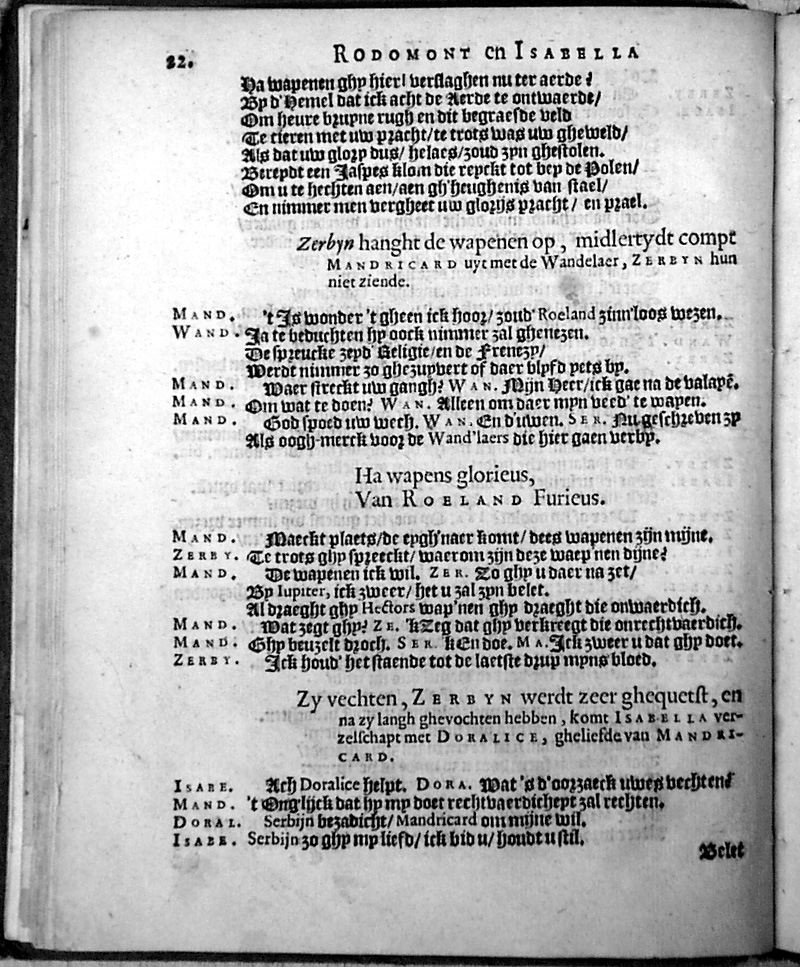 22. RODOMONT en ISABELLA
Ha wapenen ghy hier! verslaghen nu ter aerde?
By d'Hemel dat ick acht de Aerde te ontwaerdt/
Om heure bruyne rugh en dit begraesde veld
Te cieren met uw pracht/ te trots was uw gheweld/
Als dat uw glory dus/ helaes/ zoud zyn ghestolen.
Bereydt een Jaspes klom die reyckt tot bey de Polen/
Om u te hechten aen/ aen gh'heughenis van stael/
En nimmer men vergheet uw glorijs pracht/ en prael.
Zerbyn hanght de wapenen op, midlertydt compt
MANDRICARD uyt met de Wandelaer, ZERBYN hun
niet ziende.
MAND. 't Is wonder 't gheen ick hoor/ zoud' Roeland zinn'loos wezen.
WAND. Ja te beduchten hy oock nimmer zal ghenezen.
De spreucke zeyd' Religie/ en de Frenezy/
Werdt nimmer zo ghezuyvert of daer blyfd yets by.
MAND. Waer streckt uw gangh? WAN. Mijn Heer/ ick gae na de valaye.
MAND. Om wat te doen? WAN. Alleen om daer myn veed' te wapen.
MAND. God spoed uw wech. WAN. En d'uwen. SER. Nu geschreven zy
Als oogh-merck voor de Wand'laers die hier gaen verby.
Ha wapens glorieus,
Van ROELAND Furieus.
MAND. Maeckt plaets/ de eygh'naer komt/ dees wapenen zijn mijne.
ZERBY. Te trots ghy spreeckt/ waerom zijn deze waep'nen dijne?
MAND. De wapenen ick wil. ZER. Zo ghy u daer na zet/
By Iupiter, ick zweer/ het u zal zyn belet.
Al draeght ghy Hectors wap'nen ghy draeght die onwaerdich.
MAND. Wat zegt ghy? ZE. 'k Zeg dat ghy verkreegt die onrechtvaerdich.
MAND. Ghy beuzelt droch. SER. k En doe. MA. Ick zweer u dat ghy doet.
ZERBY. Ick houd' het staende tot de laetste drup myns bloed.
Zy vechten, ZERBYN werdt zeer ghequetst, en
na zy langh ghevochten hebben, komt ISABELLA ver-
zelschapt met DORALICE, gheliefde van MANDRI-
CARD.
ISABE. Ach Doralice helpt. DORA. Wat 's d'oorzaeck uwes vechten?
MAND. 't Ong'lijck dat hy my doet rechtvaerdicheyt zal rechten.
DORAL. Serbijn bezadicht/ Mandricard om mijne wil.
ISABE. Serbijn zo ghy my liefd/ ick bid u/ houdt u stil.
Belet